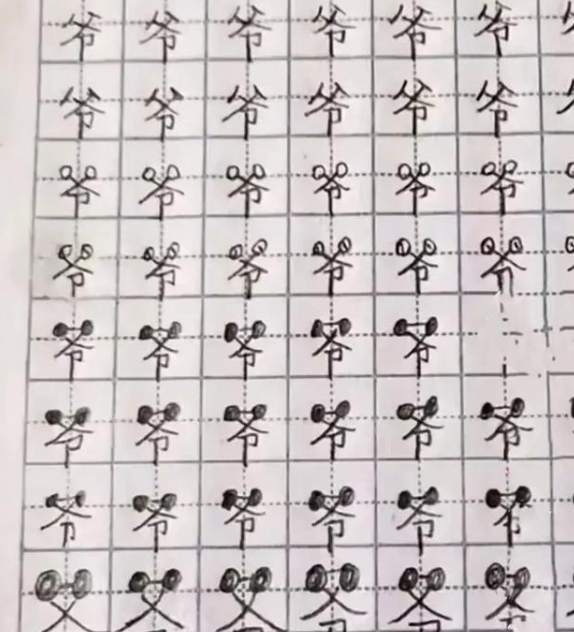 爷爷爷爷爷爷
爷爷爷爷爷爷
爷爷爷爷爷爷
爷爷爷爷爷爷
爷爷爷爷爷
爷爷爷爷爷爷
爷爷爷爷爷爷
爷爷爷爷爷爷